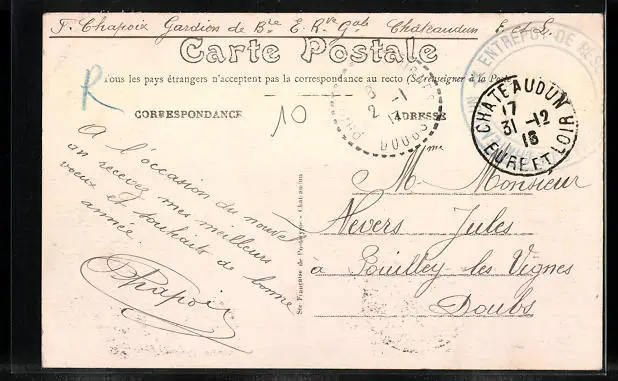 F. Chapoix Gardien de Bie E. Rve Gale Châteaudun E. et L.
Carte Postale
Tous les pays étrangers n'acceptent pas la correspondance au recto (Se renseigner à la Poste
R
CORRESPONDANCE
10
ADRESSE
2 -1
DOUBS
ENTREPÔT DE RÉS
CHATEAUDUN
17
31 -12
16
EURE ET LOIR
A l'occasion du nouvel
an recevez mes meilleurs
voeux et souhaits de bonne
année.
Chapoix
Mme
M. Monsieur
Nevers Jules
à Pouilley les Vignes
Doubs